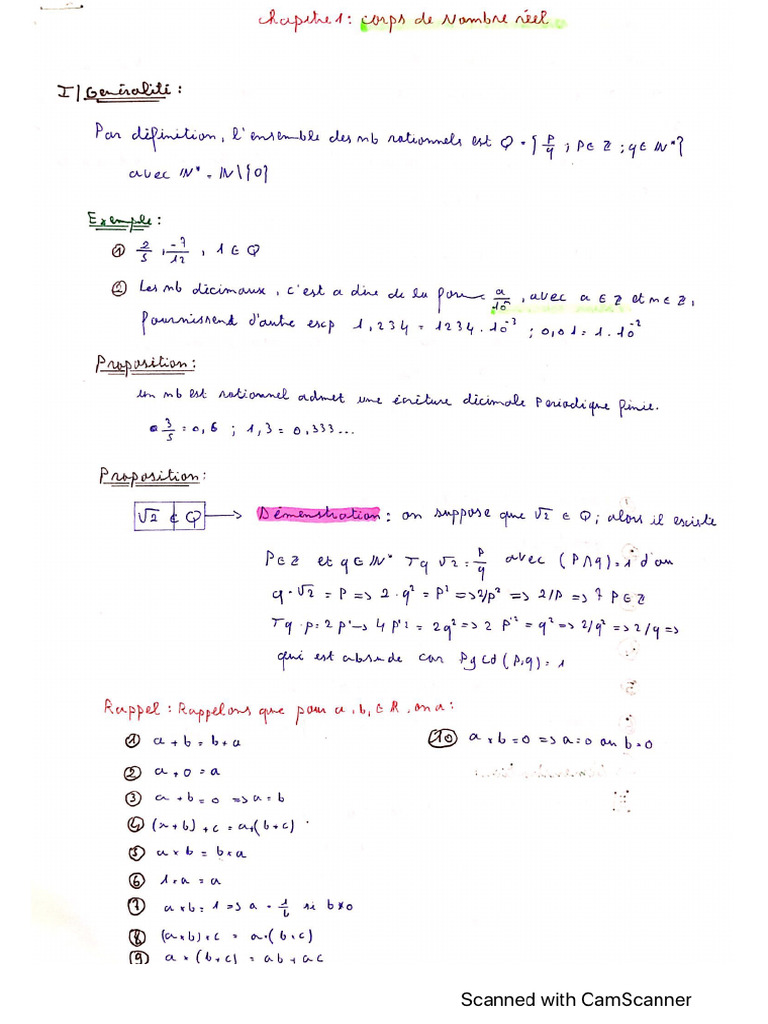 Chapitre 1: Corps de Nombre réel
I/ Généralité :
Par définition, l'ensemble des nb rationnels est Q = { p/q ; P ∈ Z ; q ∈ IN* }
avec IN* = IN \ {0}
Exemple :
① 2/5 , -7/12 , 1 ∈ Q
② Les nb décimaux, c'est a dire de la forme a/10^n , avec a ∈ Z et n ∈ Z,
fournissend d'autre 1,234 = 1234 . 10^-3 ; 0,01 = 1 . 10^-2
Proposition :
un nb est rationnel admet une écriture décimale Periodique finie.
3/5 = 0,6 ; 1,3 = 0,333...
Proposition :
√2 ∉ Q → Démenstration : on suppose que √2 ∈ Q ; alors il existe
P ∈ Z et q ∈ IN* Tq √2 = P/q avec (P ∧ q) = 1 d'au
q . √2 = P => 2 . q² = P² => 2/p² => 2/P => ? P ∈ Z
Tq . p = 2 p' -> 4 P'² = 2q² => 2 P'² = q² => 2/q² => 2/q =>
qui est absude car Pgcd (P,q) = 1
Rappel : Rappelons que pour a, b, ∈ R, on a :
① a + b = b + a
② a + 0 = a
③ a + b = 0 => a = b
④ (x + b) + c = a + (b + c)
⑤ a × b = b × a
⑥ 1 × a = a
⑦ a × b = 1 => a = 1/b si b ≠ 0
⑧ (a × b) × c = a . ( b × c)
⑨ a × (b + c) = ab + ac
⑩ a × b = 0 => a = 0 ou b = 0
Scanned with CamScanner